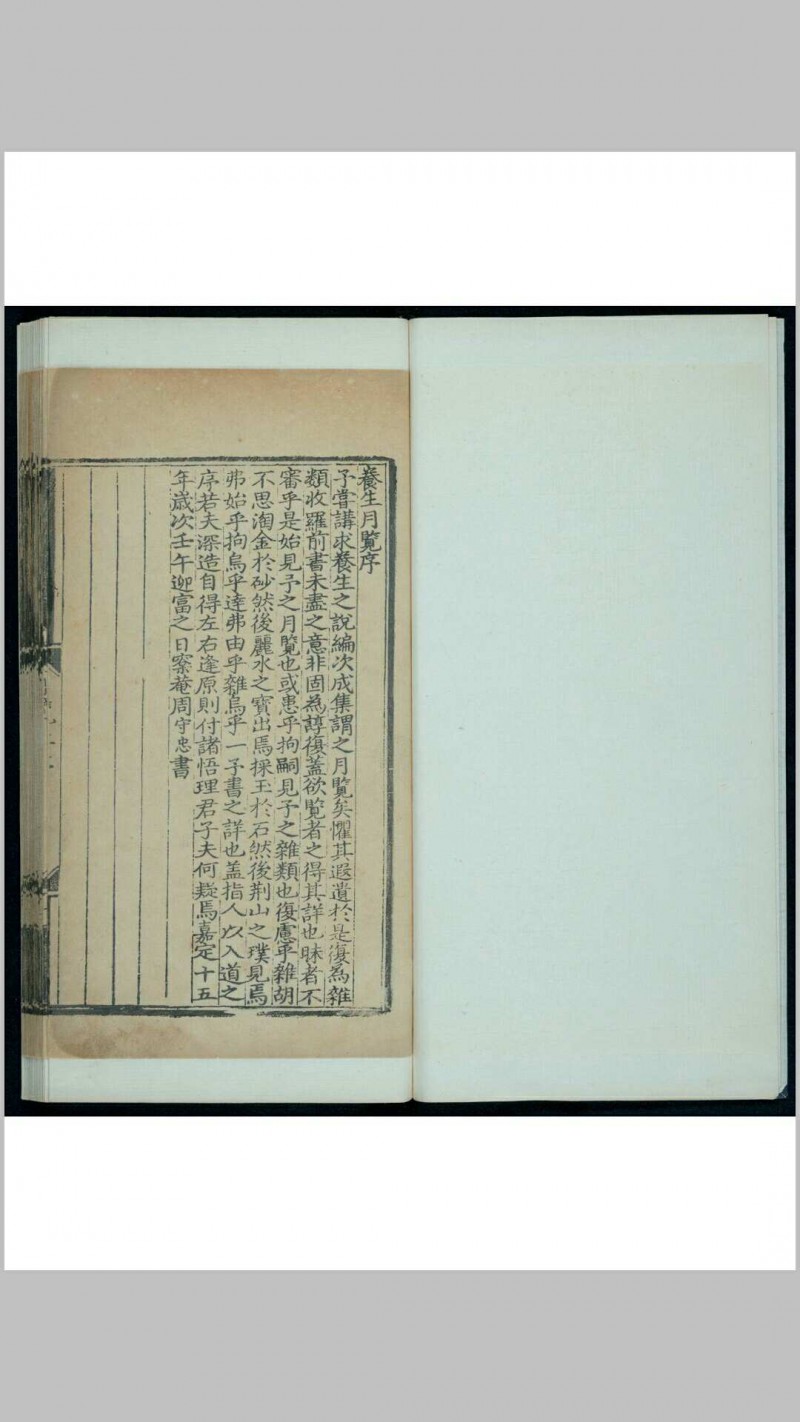 養生月覽序
予嘗講求養生之說編次成集謂之月覽矣懼其遐遺於是復為雜
類收羅前書未盡之意非固為諄復蓋欲覽者之得其詳也昧者不
審乎是始見予之月覽也或患乎拘嗣見予之雜類也復慮乎雜胡
不思淘金於砂然後麗水之寶出焉採玉於石然後荆山之璞見焉
弗始乎拘烏乎達弗由乎雜烏乎一予書之詳也盖指人以入道之
序若夫深造自得左右逢原則付諸悟理君子夫何疑焉嘉定十五
年歲次壬午迎富之日寮菴周守忠書